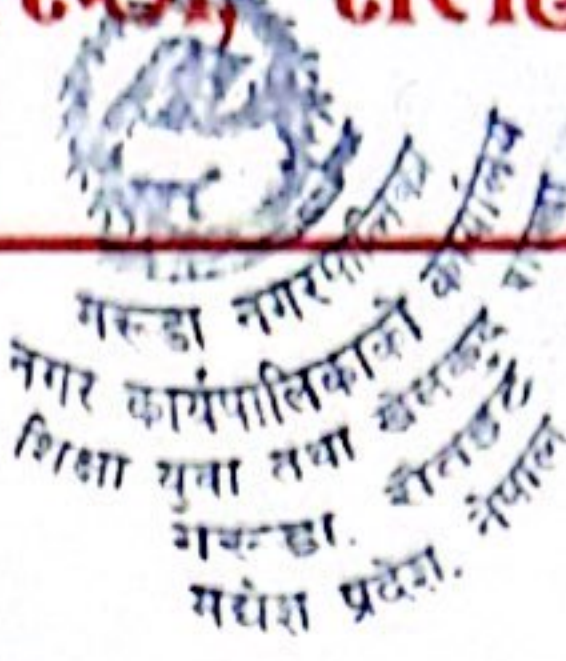 गरूडा नगरपालिका
नगर कार्यपालिकाको कार्यालय
शिक्षा युवा तथा खेलकुद शाखा
गरूडा. रौतहट
मधेश प्रदेश. नेपाल